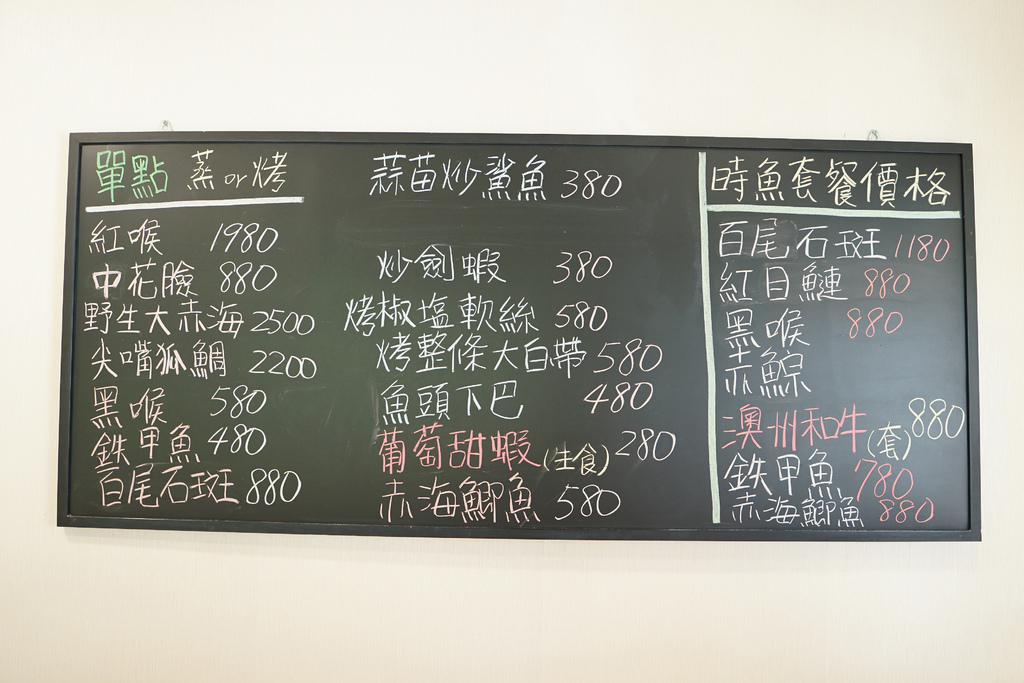 單點 蒸or烤
紅喉 1980
中花臉 880
野生大赤海 2500
尖嘴狐鯛 2200
黑喉 580
鉄甲魚 480
百尾石斑 880
蒜苗炒鯊魚 380
炒劍蝦 380
烤椒塩軟絲 580
烤整條大白帶 580
魚頭下巴 480
葡萄甜蝦(生食) 280
赤海鯽魚 580
時魚套餐價格
百尾石斑 1180
紅目鰱 880
黑喉 880
赤鯮
澳州和牛(套) 880
鉄甲魚 780
赤海鯽魚 880